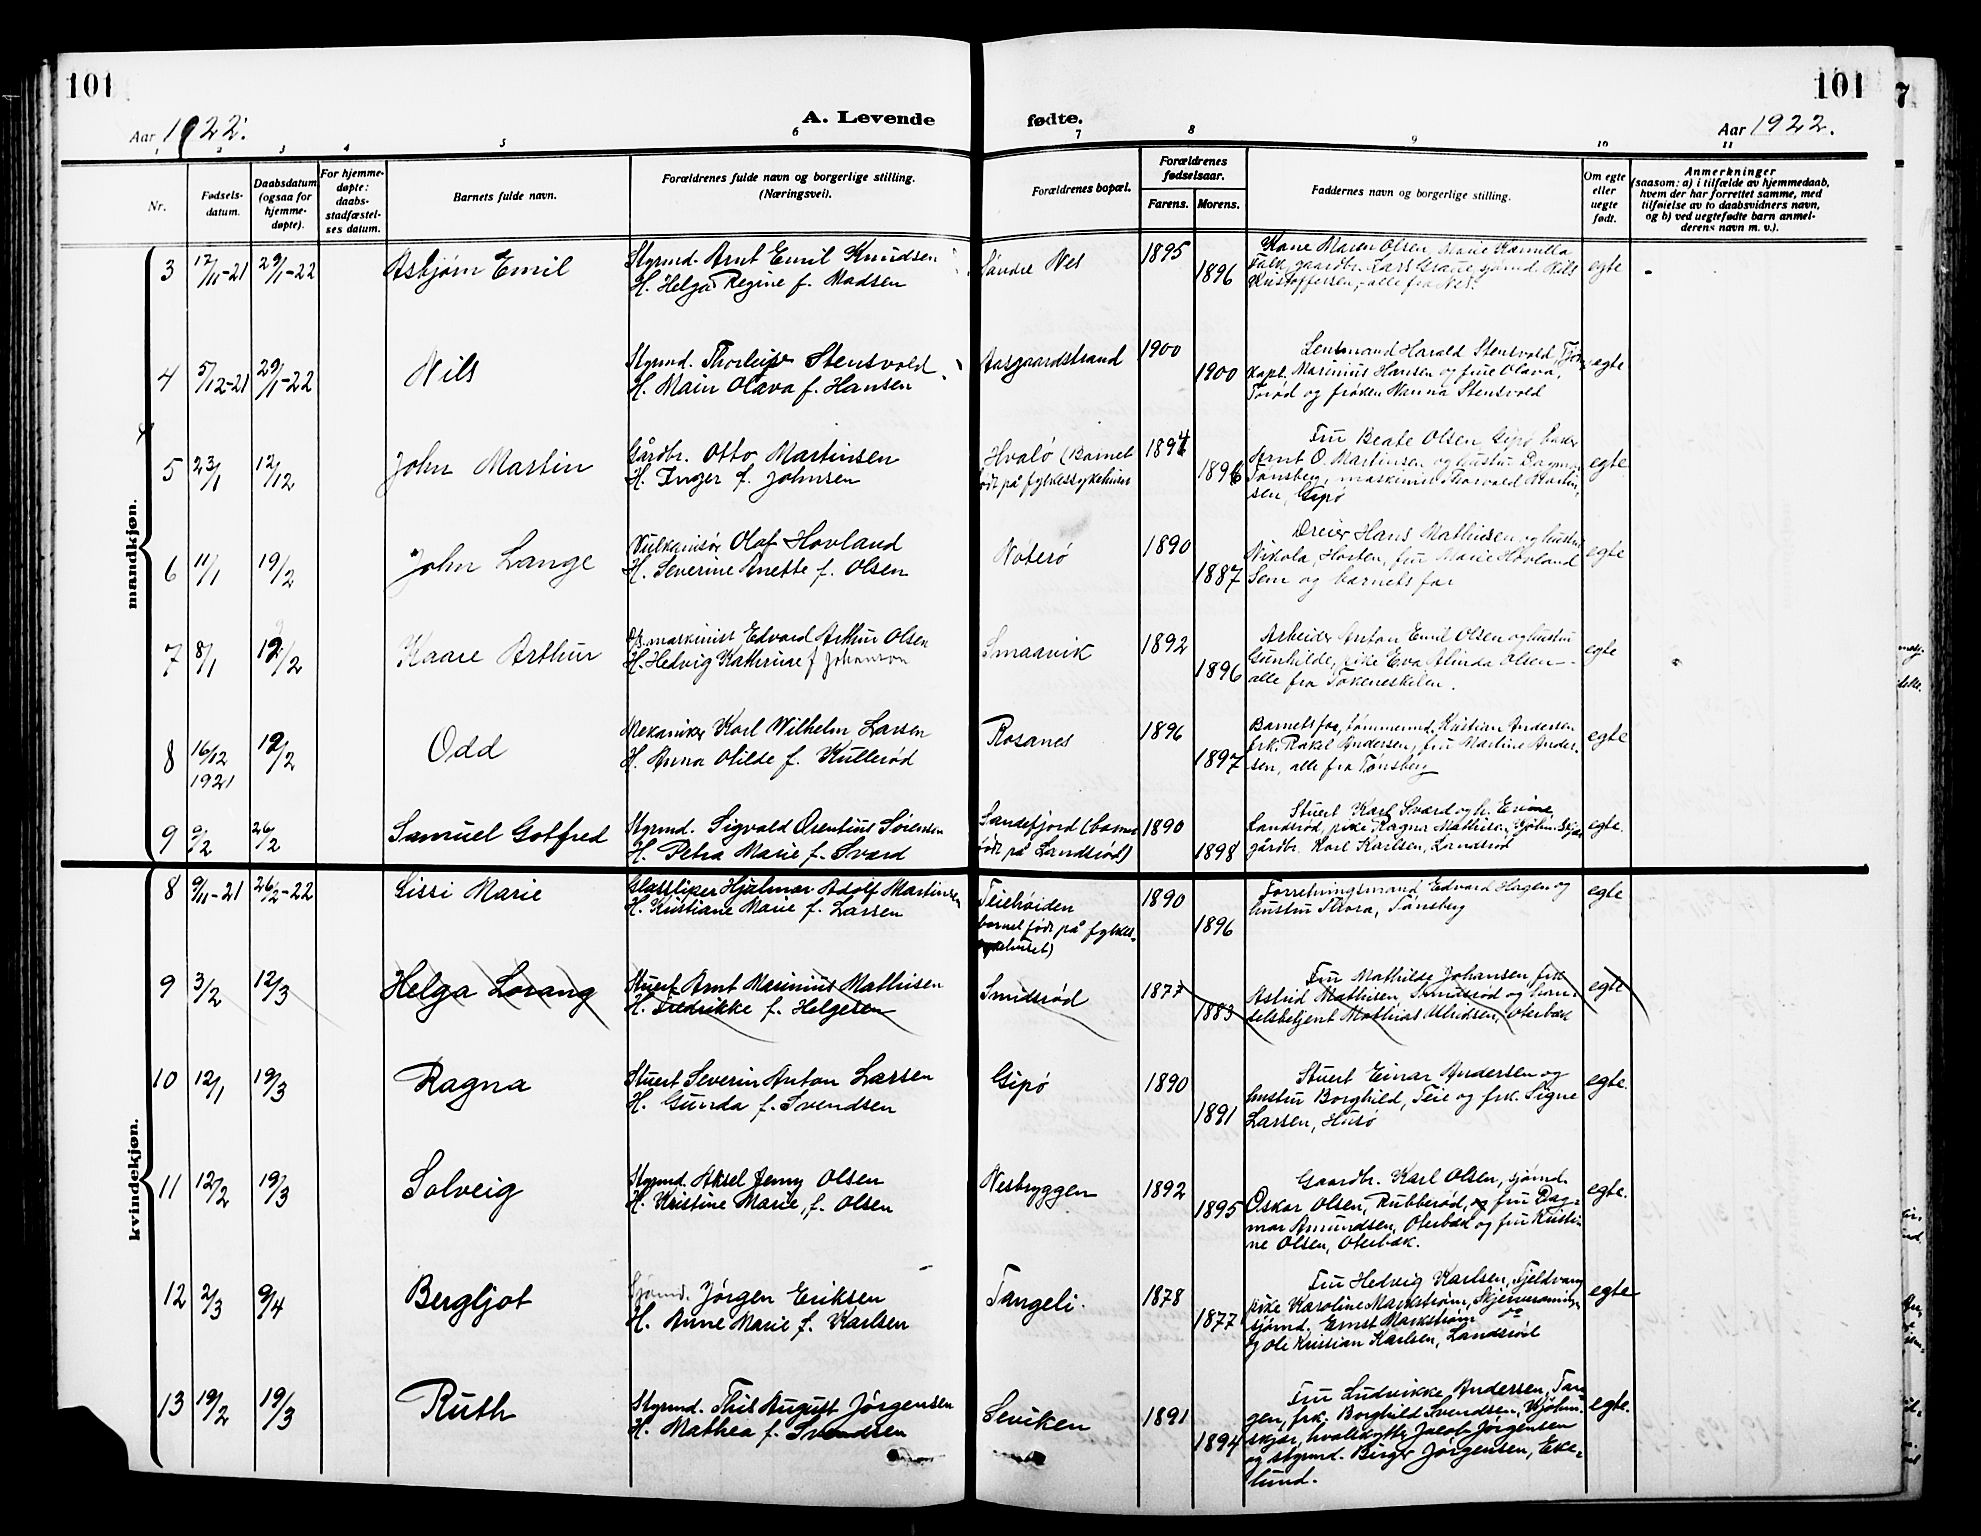 101
101
Aar 1922.
A. Levende
fødte.
Aar 1922.
1 2 3 4 5 6 7 8 9 10 11
Nr.
Fødsels-
datum.
Daabsdatum
(ogsaa for
hjemme-
døpte).
For hjemme-
døpte:
daabs-
stadfæstel-
ses datum.
Barnets fulde navn.
Forældrenes fulde navn og borgerlige stilling.
(Næringsvei).
Forældrenes bopæl.
Forældrenes
fødselsaar.
Farens. Morens.
Faddernes navn og borgerlige stilling.
Om egte
eller
uegte
født.
Anmerkninger
(saasom: a) i tilfælde av hjemmedaab,
hvem der har forrettet samme, med
tilføielse av to daabsvidners navn,
og b) ved uegtefødte barn anmel-
derens navn m. v.).
mandkjøn.
3 17/11-21 29/1-22 Asbjørn Emil
Styrmd. Arnt Emil Knudsen
H. Helga Regine f. Madsen
Søndre Nes
1895
1896
Kone Maren Olsen, Marie Kamilla
Falk, gaardbr. Lars Graue, sjømd. Nils
Kristoffersen, alle fra Nes.
egte
4 5/12-21 29/1-22 Nils
Styrmd. Thorleif Stensvold
H. Main Olava f. Hansen
Aasgaardstrand
1900
1900
Lensmand Harald Stensvold,
kapt. Marinius Hansen og frue Olava,
Torød og frøken Nanna Stensvold
egte
5 23/1 12/12 John Martin
Gårdbr. Otto Martinsen
H. Inger f. Johnsen
Hvalø (Barnet
født på fylkessykehuset
1894
1896
Fru Beate Olsen Gipø
Arnt O. Martinsen og hustru Dagmar
Tønsberg, maskinist Thorvald Martin-
sen, Gipø
egte
6 11/1 19/2 John Lange
Vulkanisør Olaf Hovland
H. Severine Anette f. Olsen
Nøterø
1890
1887
Dreier Hans Mathisen og hustru
Nikola, Horten, fru Marie Hovland
Sem og barnets far
egte
7 8/1 12/2 Kaare Arthur
maskinist Edvard Arthur Olsen
H. Hedvig Kathrine f Johanson
Smaavik
1892
1896
Arbeider Anton Emil Olsen og hustru
Gunhilde, pike Eva Alinda Olsen -
alle fra Tokeneskilen.
egte
8 16/12 1921 12/2 Odd
Mekaniker Karl Wilhelm Larsen
H. Anna Otilde f. Kullerød
Rosanes
1896
1897
Barnets far, tømmermd. Kristian Andersen
frk. Rakel Andersen, fru Martine Ander-
sen, alle fra Tønsberg
egte
9 9/2 26/2 Samuel Gotfred
Styrmd. Sigvald Orentius Sørensen
H. Petra Marie f. Sværd
Sandefjord (barnet
født på Landsrød)
1890
1898
Stuert Karl Sværd og h.
Landsrød, pike Ragna Mathisen,
gårdbr. Karl Karlsen, Landsrød
egte.
kvindekjøn.
8 9/11-21 26/2-22 Sissi Marie
Glassliper Hjalmar Adolf Martinsen
H. Kristiane Marie f. Larsen
Teiehøiden
barnet født på fylkes-
sykehuset)
1890
1896
Forretningsmand Edvard Hagen og
hustru Thora, Tønsberg
egte
9 3/2 12/3 Helga Lorang
Stuert Arnt Marinius Mathisen
H. Fredrikke f. Helgesen
Smidsrød
1877
1883
Fru Mathilde Johansen, frk
Astrid Mathisen, Smidsrød og han-
delsbetjent Mathias Olsen, Oterbæk
egte
10 12/1 19/3 Ragna
Stuert Severin Anton Larsen
H. Gunda f. Svendsen
Gipø
1890
1891
Stuert Einar Andersen og
hustru Borghild, Teie og frk. Signe
Larsen, Husø
egte.
11 12/2 19/3 Solveig
Styrmd. Aksel Jenny Olsen
H. Kristine Marie, f. Olsen
Nesbryggen
1892
1895
Gaardbr. Karl Olsen, sjømd.
Oskar Olsen, Rubberød, og fru Dag-
mar Amundsen, Oterbæk og fru Kristi-
ne Olsen, Oterbæk.
egte.
12 2/3 9/4 Bergljot
Sjømd. Jørgen Eriksen
H. Anne Marie f. Karlsen
Tangeli.
1878
1877
Fru Hedvig Karlsen, Fjeldvang
pike Karoline Markstrøm,
sjømd. Ernst Markstrøm
og Ole Kristian Karlsen, Landsrød
egte
13 19/2 19/3 Ruth
Styrmd. This August Jørgensen
H. Mathea f. Svendsen
Seviken
1891
1894
Fru Ludvikke Andersen, Tan-
gen, frk. Borghild Svendsen, Kjøbm.
skjær, hvalskytter Jacob Jørgensen
og styrmd. Birger Jørgensen, Eke-
lund.
egte.